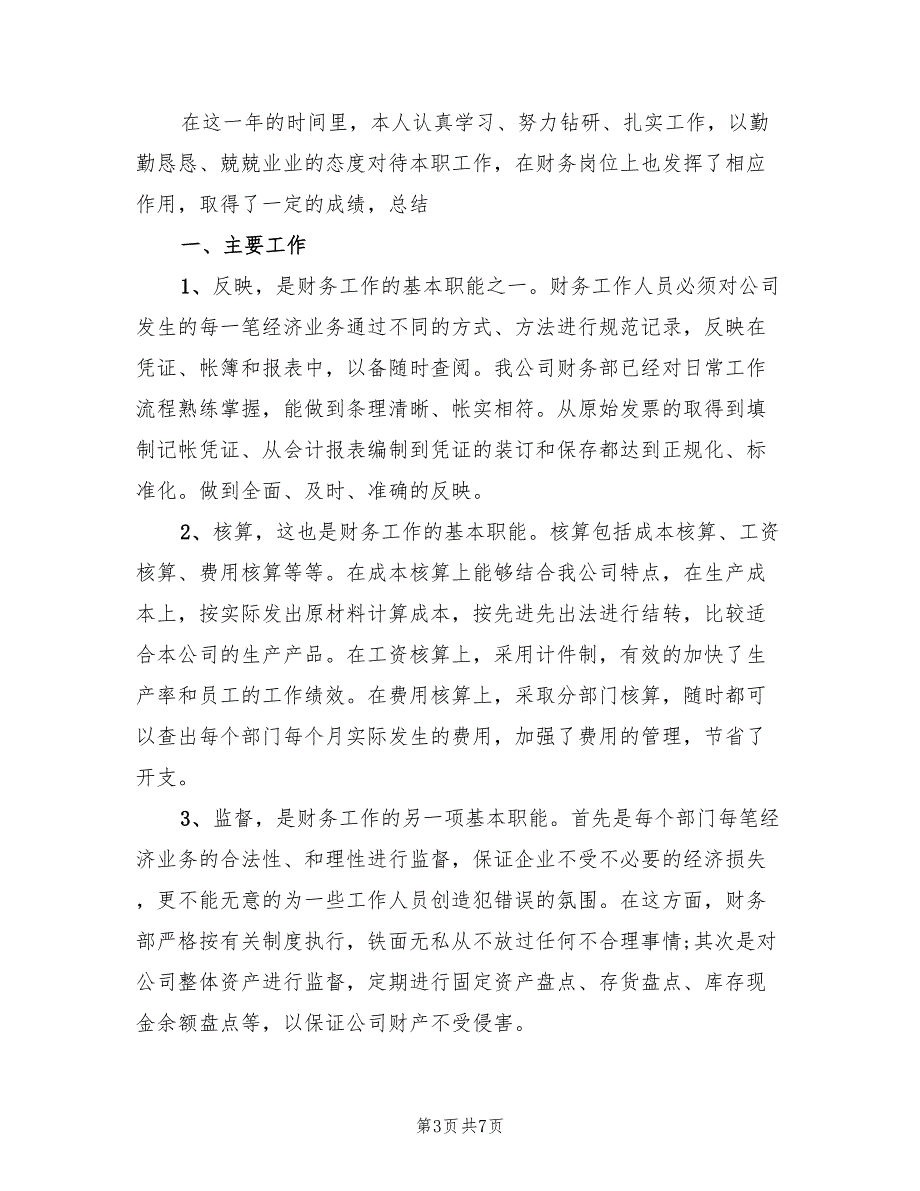 在这一年的时间里，本人认真学习、努力钻研、扎实工作，以勤
勤恳恳、兢兢业业的态度对待本职工作，在财务岗位上也发挥了相应
作用，取得了一定的成绩，总结
一、主要工作
1、反映，是财务工作的基本职能之一。财务工作人员必须对公司
发生的每一笔经济业务通过不同的方式、方法进行规范记录，反映在
凭证、帐簿和报表中，以备随时查阅。我公司财务部已经对日常工作
流程熟练掌握，能做到条理清晰、帐实相符。从原始发票的取得到填
制记帐凭证、从会计报表编制到凭证的装订和保存都达到正规化、标
准化。做到全面、及时、准确的反映。
2、核算，这也是财务工作的基本职能。核算包括成本核算、工资
核算、费用核算等等。在成本核算上能够结合我公司特点，在生产成
本上，按实际发出原材料计算成本，按先进先出法进行结转，比较适
合本公司的生产产品。在工资核算上，采用计件制，有效的加快了生
产率和员工的工作绩效。在费用核算上，采取分部门核算，随时都可
以查出每个部门每个月实际发生的费用，加强了费用的管理，节省了
开支。
3、监督，是财务工作的另一项基本职能。首先是每个部门每笔经
济业务的合法性、和理性进行监督，保证企业不受不必要的经济损失
，更不能无意的为一些工作人员创造犯错误的氛围。在这方面，财务
部严格按有关制度执行，铁面无私从不放过任何不合理事情;其次是对
公司整体资产进行监督，定期进行固定资产盘点、存货盘点、库存现
金余额盘点等，以保证公司财产不受侵害。
第3页 共7页